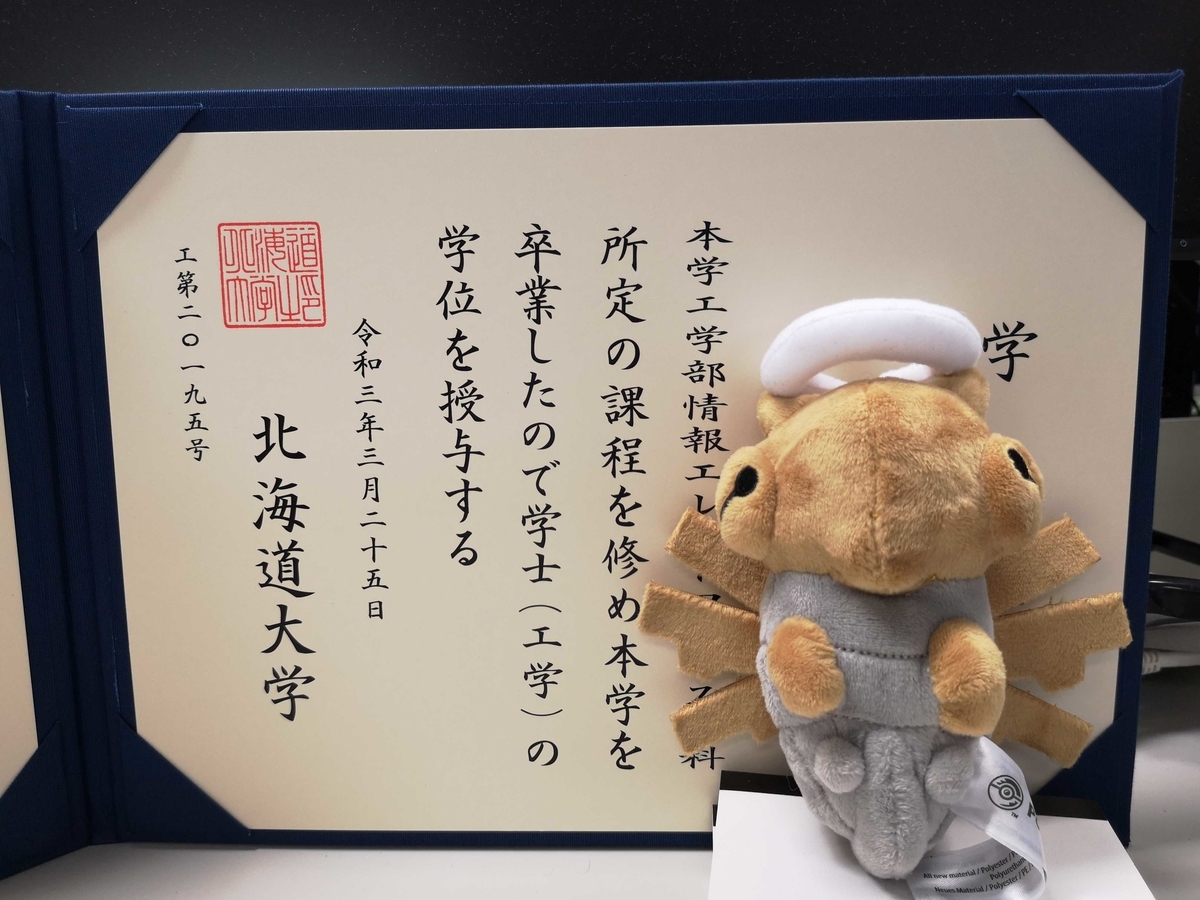 学
本学工学部情報エレ
ス
科
所定の課程を修め本学を
卒業したので学士（工学）の
学位を授与する
令和三年三月二十五日
北海道大学
工第二〇一九五号
北海道大学之印
TM
All new material / Polyester /
Polyuretha
Neues Material / Polyester / PE /